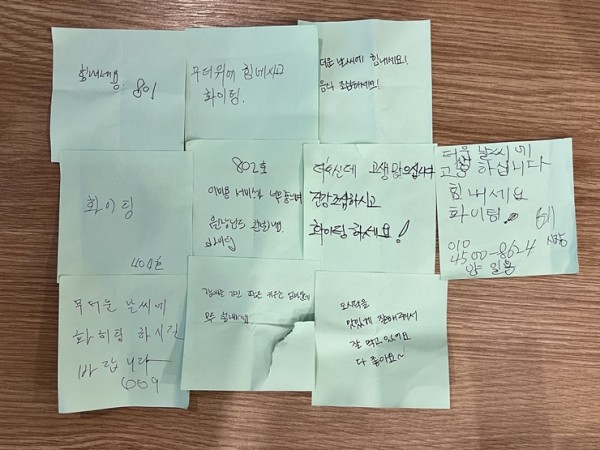 힘내세용
801
무더위에 힘내시고
화이팅.
더운 날씨에 힘내세요!
음식 조심하세요!
화이팅
404호
802호
이미용 서비스가 너무 좋네요
더우신데 고생많으십니다
건강조심하시고
화이팅하세요!
더운 날씨에
고생 하십니다
힘내세요
화이팅. 611
010
4500-8624
양 일용
무더운 날씨에
화히팅 하시길
바랍니다
609
모두 힘내세요
도시락을
맛있게 잘해주셔서
잘 먹고있어요
다 좋아요~